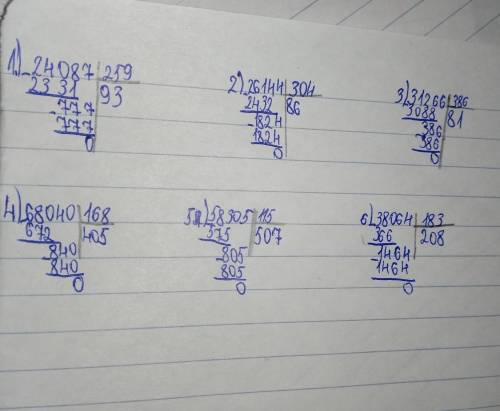 1) 24087 259
- 2331 93
- 777
777
0
2) 26144 304
2432 86
- 1824
1824
0
3) 31266 386
3088 81
- 386
386
0
4) 68040 168
672 405
- 840
840
0
5) 58305 115
575 507
- 805
805
0
6) 38064 183
366 208
- 1464
1464
0